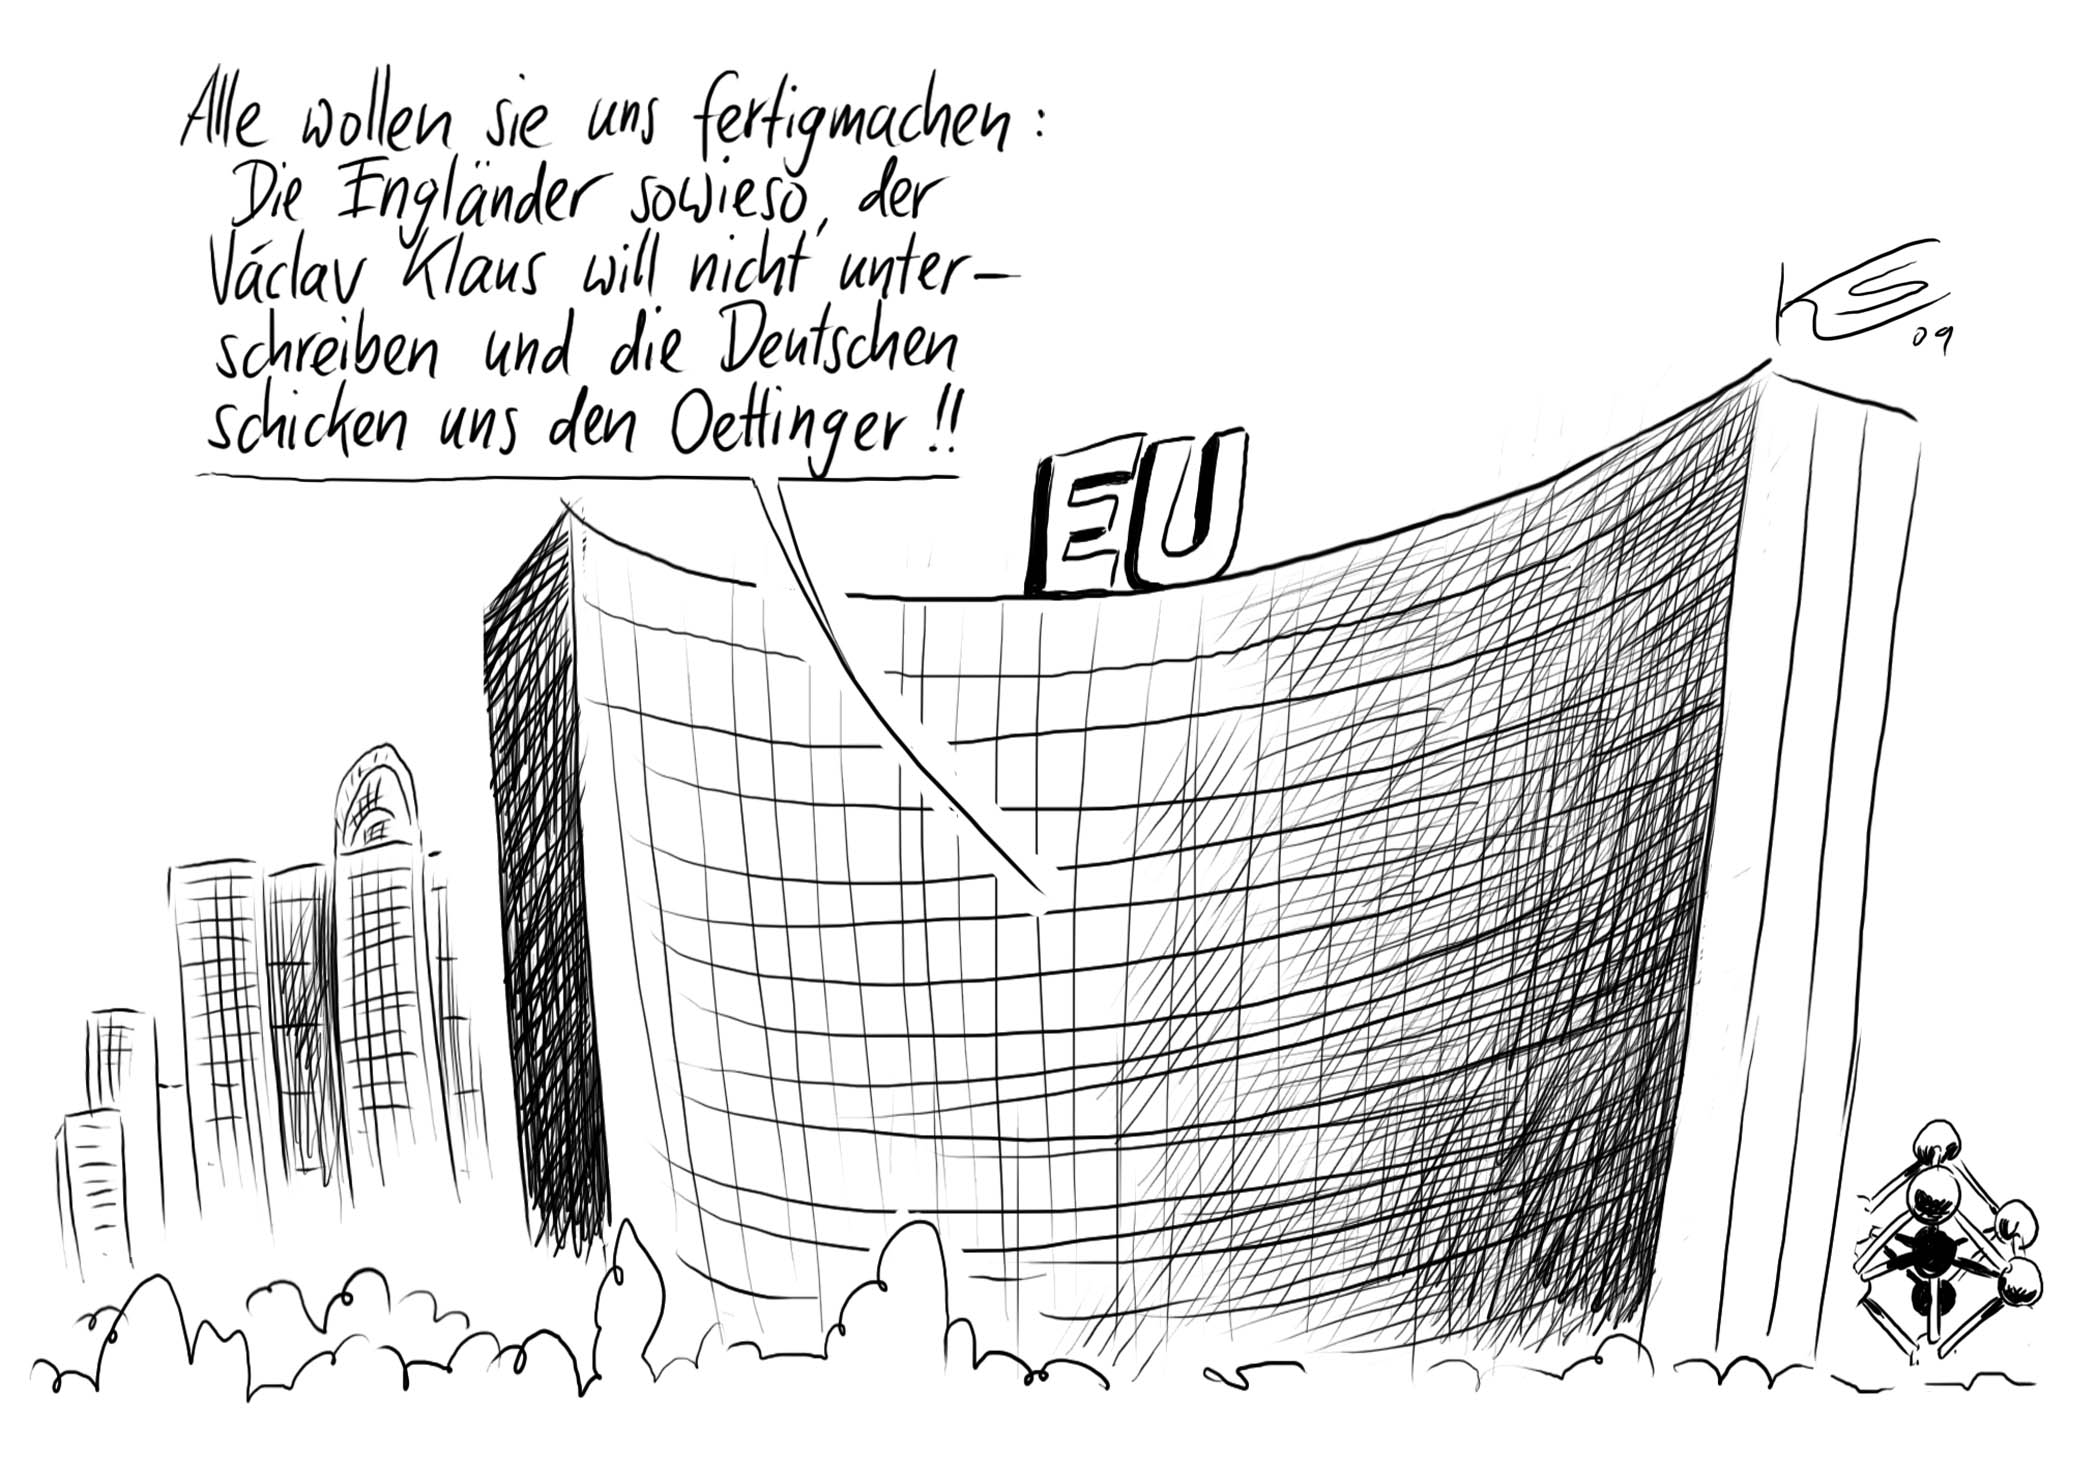 Alle wollen sie uns fertigmachen:
Die Engländer sowieso, der
Václav Klaus will nicht unter-
schreiben und die Deutschen
schicken uns den Oettinger!!
KS
09
EU